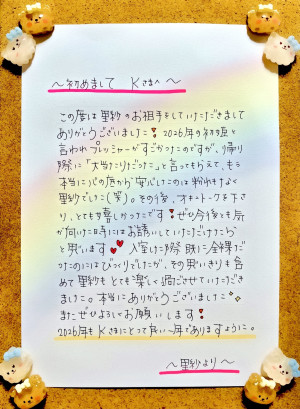 〜初めまして Kさまへ〜
この度は里紗のお相手をしていただきまして
ありがとうございました❣ 2026年の初頭と
言われプレッシャーがすごかったのですが、帰り
際に「大当たりだった」と言ってもらえて、もう
本当に心の底から安心したのは紛れもなく
里紗でした(笑)。その後、オキニトークを下さ
り、とても嬉しかったです❣ぜひ今後とも気
が向いた日時にはお誘いしていただけたらな
と思います 入室した際 既に全裸だ
ったのにはびっくりでしたが、その思いきりも含
めて里紗もとても楽しく過ごさせていただき
ました。本当にありがとうございました
またぜひよろしくお願いします❣
2026年もKさまにとって良い一年でありますように。
〜里紗より〜